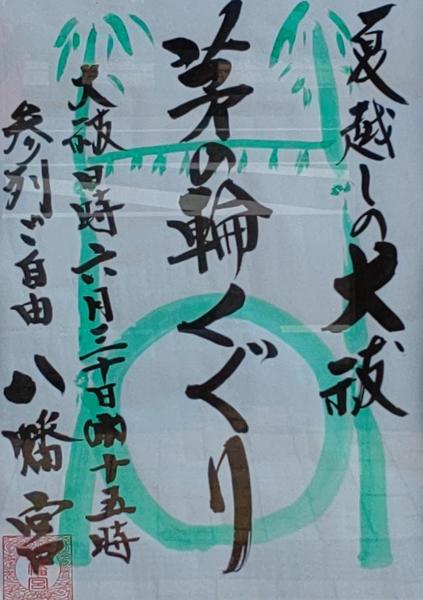 夏越しの大祓
茅の輪くぐり
大祓日時六月三十日㈬十五時
参列ご自由 八幡宮